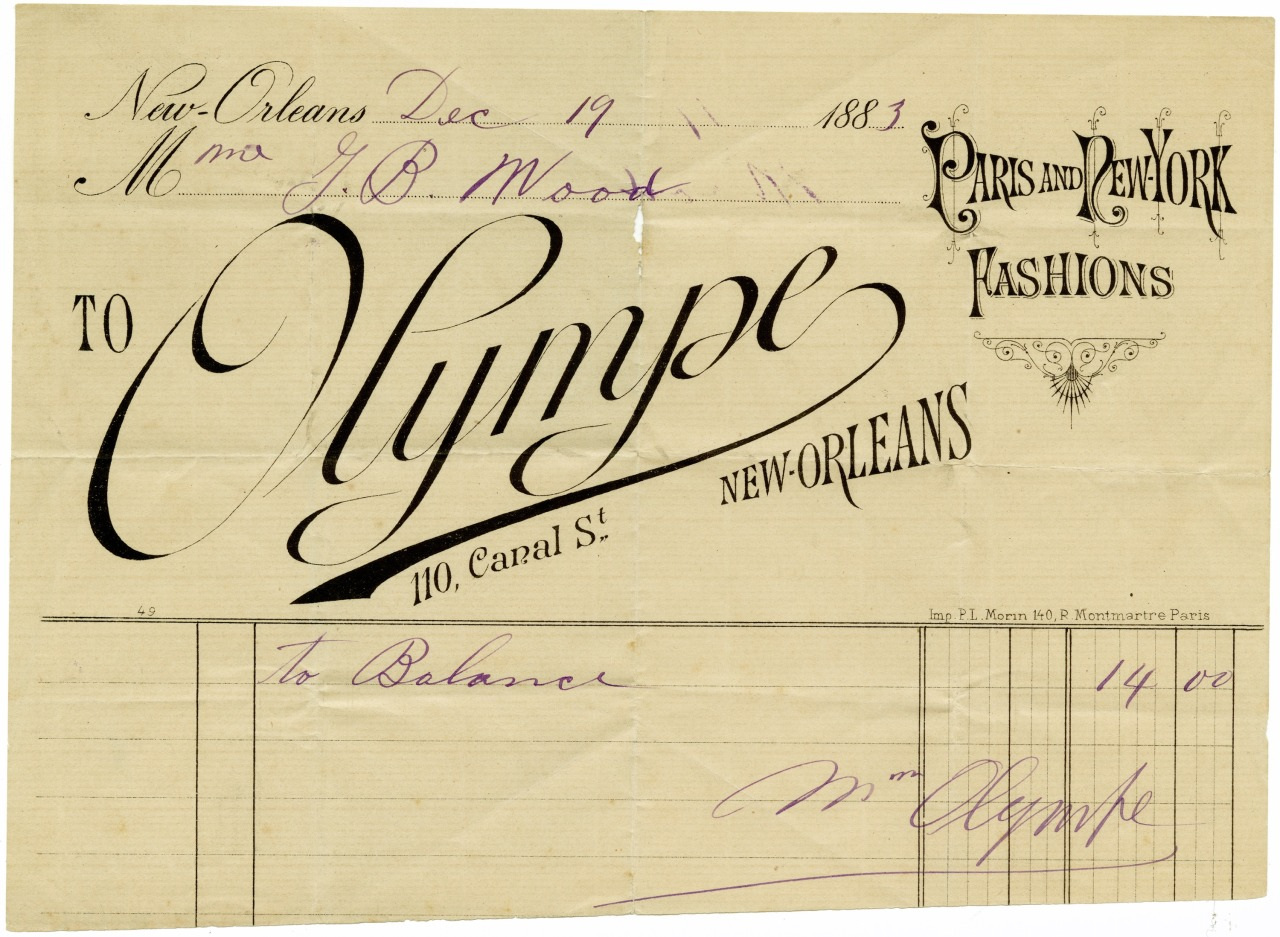 New-Orleans Dec 19 1883
Mme J. B. Wood
PARIS AND NEW-YORK
FASHIONS
TO Olympe
NEW-ORLEANS
110, Canal St.
49
Imp. P.L. Morin 140, R. Montmartre Paris
to Balance 14 00
Mm Olympe